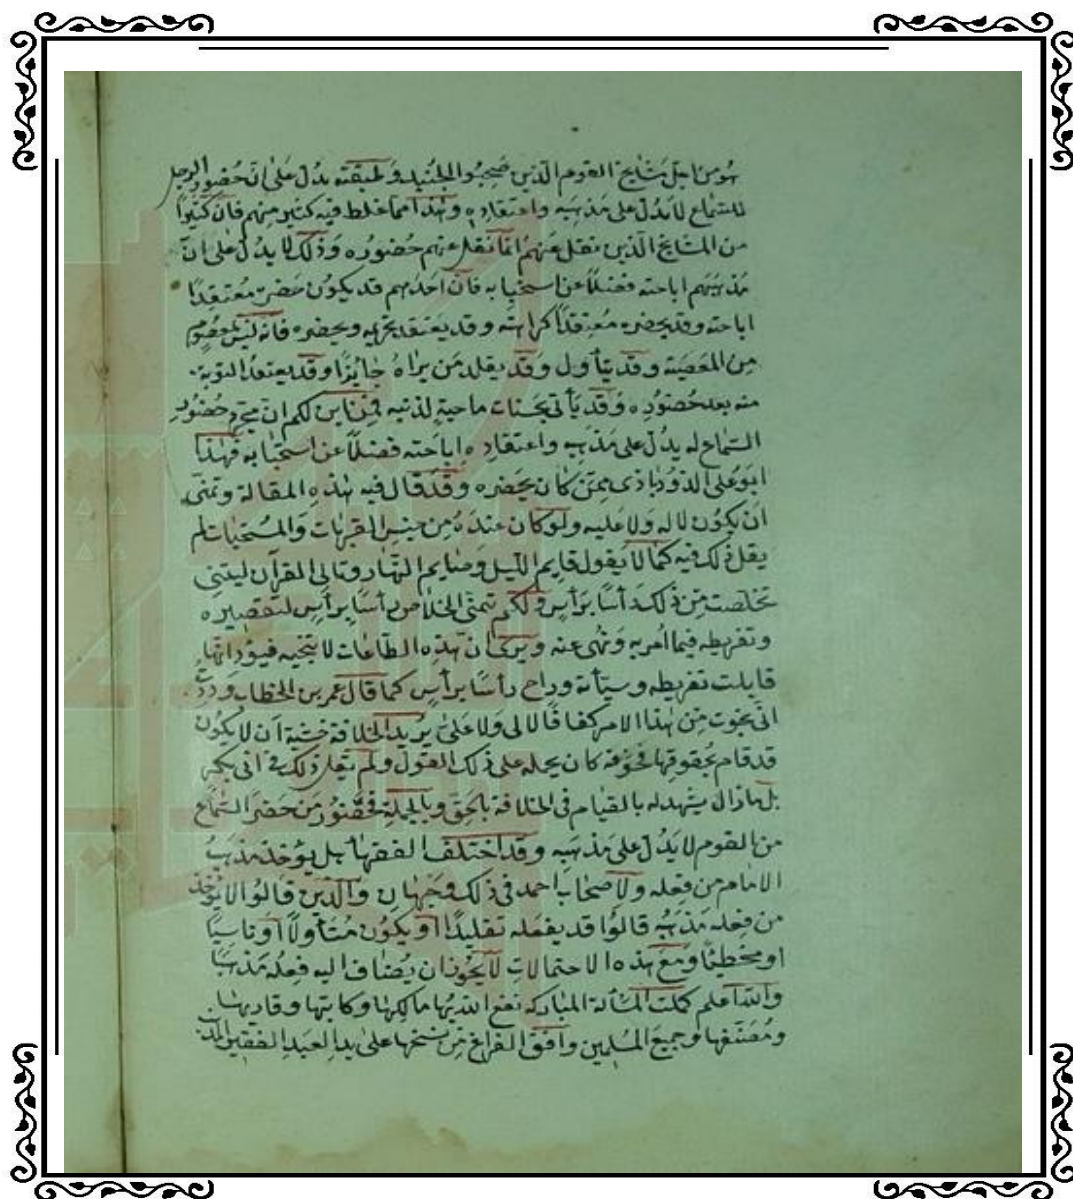 هو من اجل مشايخ القوم الذين صحبوا الجنيد وطبقته يدل على ان حضور الرجل
للسماع لا يدل على مذهبه واعتقاده وهذا مما غلط فيه كثير منهم فان كثيرا
من المشايخ الذين نقل عنهم انما نقل عنهم حضوره وذلك لا يدل على ان
مذهبهم اباحته فضلا عن استحبابه فان احدهم قد يكون حضره معتقدا
اباحته وقد يحضره معتقدا كراهته وقد يعتقد تحريمه ويحضره فانه ليس بمعصوم
من المعصية وقد يتأول وقد يقلد من يراه جايزا وقد يعتقد التوبة
منه بعد حضوره وقد يأتى بحسنات ماحية لذنبه فمن اين لكم ان مجرد حضور
السماع له يدل على مذهبه واعتقاده اباحته فضلا عن استحبابه فهذا
ابو على الروذبادى ممن كان يحضره وقد قال فيه هذه المقالة وتمنى
ان يكون لا له ولا عليه ولو كان عنده من جنس القربات والمستحبات لم
يقل ذلك فيه كما لا يقول قايم الليل وصايم النهار وتالى القرآن ليتنى
تخلصت من ذلك رأسا برأس ولكم تمنى الخلاص رأسا برأس لتقصيره
وتفريطه فيما امر به ونهى عنه ويرى ان هذه الطاعات لا تنجيه فيود انها
قابلت تفريطه وسيأته وراح رأسا برأس كما قال عمر بن الخطاب وددت
انى نجوت من هذا الامر كفافا لا لى ولا على يريد الخلافة خشية ان لا يكون
قد قام بحقوقها فخوفه كان يحمله على ذلك القول ولم يقل ذلك فى ابى بكر
بل ما زال يشهد له بالقيام فى الخلافة بالحق وبالجملة فحضور من حضر السماع
من القوم لا يدل على مذهبه وقد اختلف الفقهاء هل يؤخذ مذهب
الامام من فعله ولاصحاب احمد فى ذلك وجهان والذين قالوا لا يؤخذ
من فعله مذهبه قالوا قد يفعله تقليدا او يكون متأولا او ناسيا
او مخطئا ومع هذه الاحتمالات لا يجوز ان يضاف اليه فعله مذهبا
والله اعلم كملت المسألة المباركة نفع الله بها مالكها وكاتبها وقاريها
ومصنفها وجميع المسلمين وافق الفراغ من نسخها على يد العبد الفقير